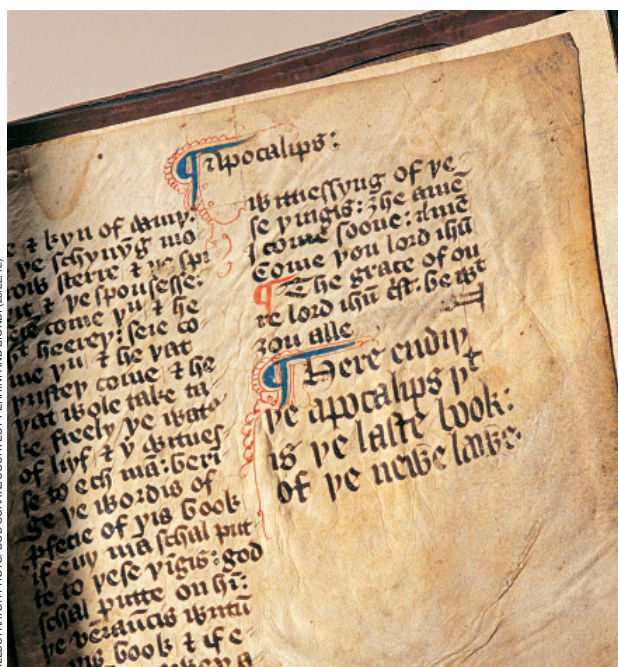 Apocalips:
e & kyn of dauiy:
ye schynyng mo
sterre & ye spi
& ye spousesse:
come yu & he
yt heerey: seie co
me yu & he yat
yirstey come & he
yat wole take ta
ke freely ye wat
of lyf & y witnes
se to ech mā: heri
ge ye wordis of
pfecie of yis book
if eny mā schal put
te to yese yīgis: god
schal putte on hī:
ye veniaūcis writū
yis book & if e
witnessyng of ye
se yingis: ȝhe amē
I come soone: amē
Come you lord ihū
The grace of ou
re lord ihū cst: be wt
ȝou alle
Here endiy
ye apocalips yt
is ye laste book:
of ye newe lawe.